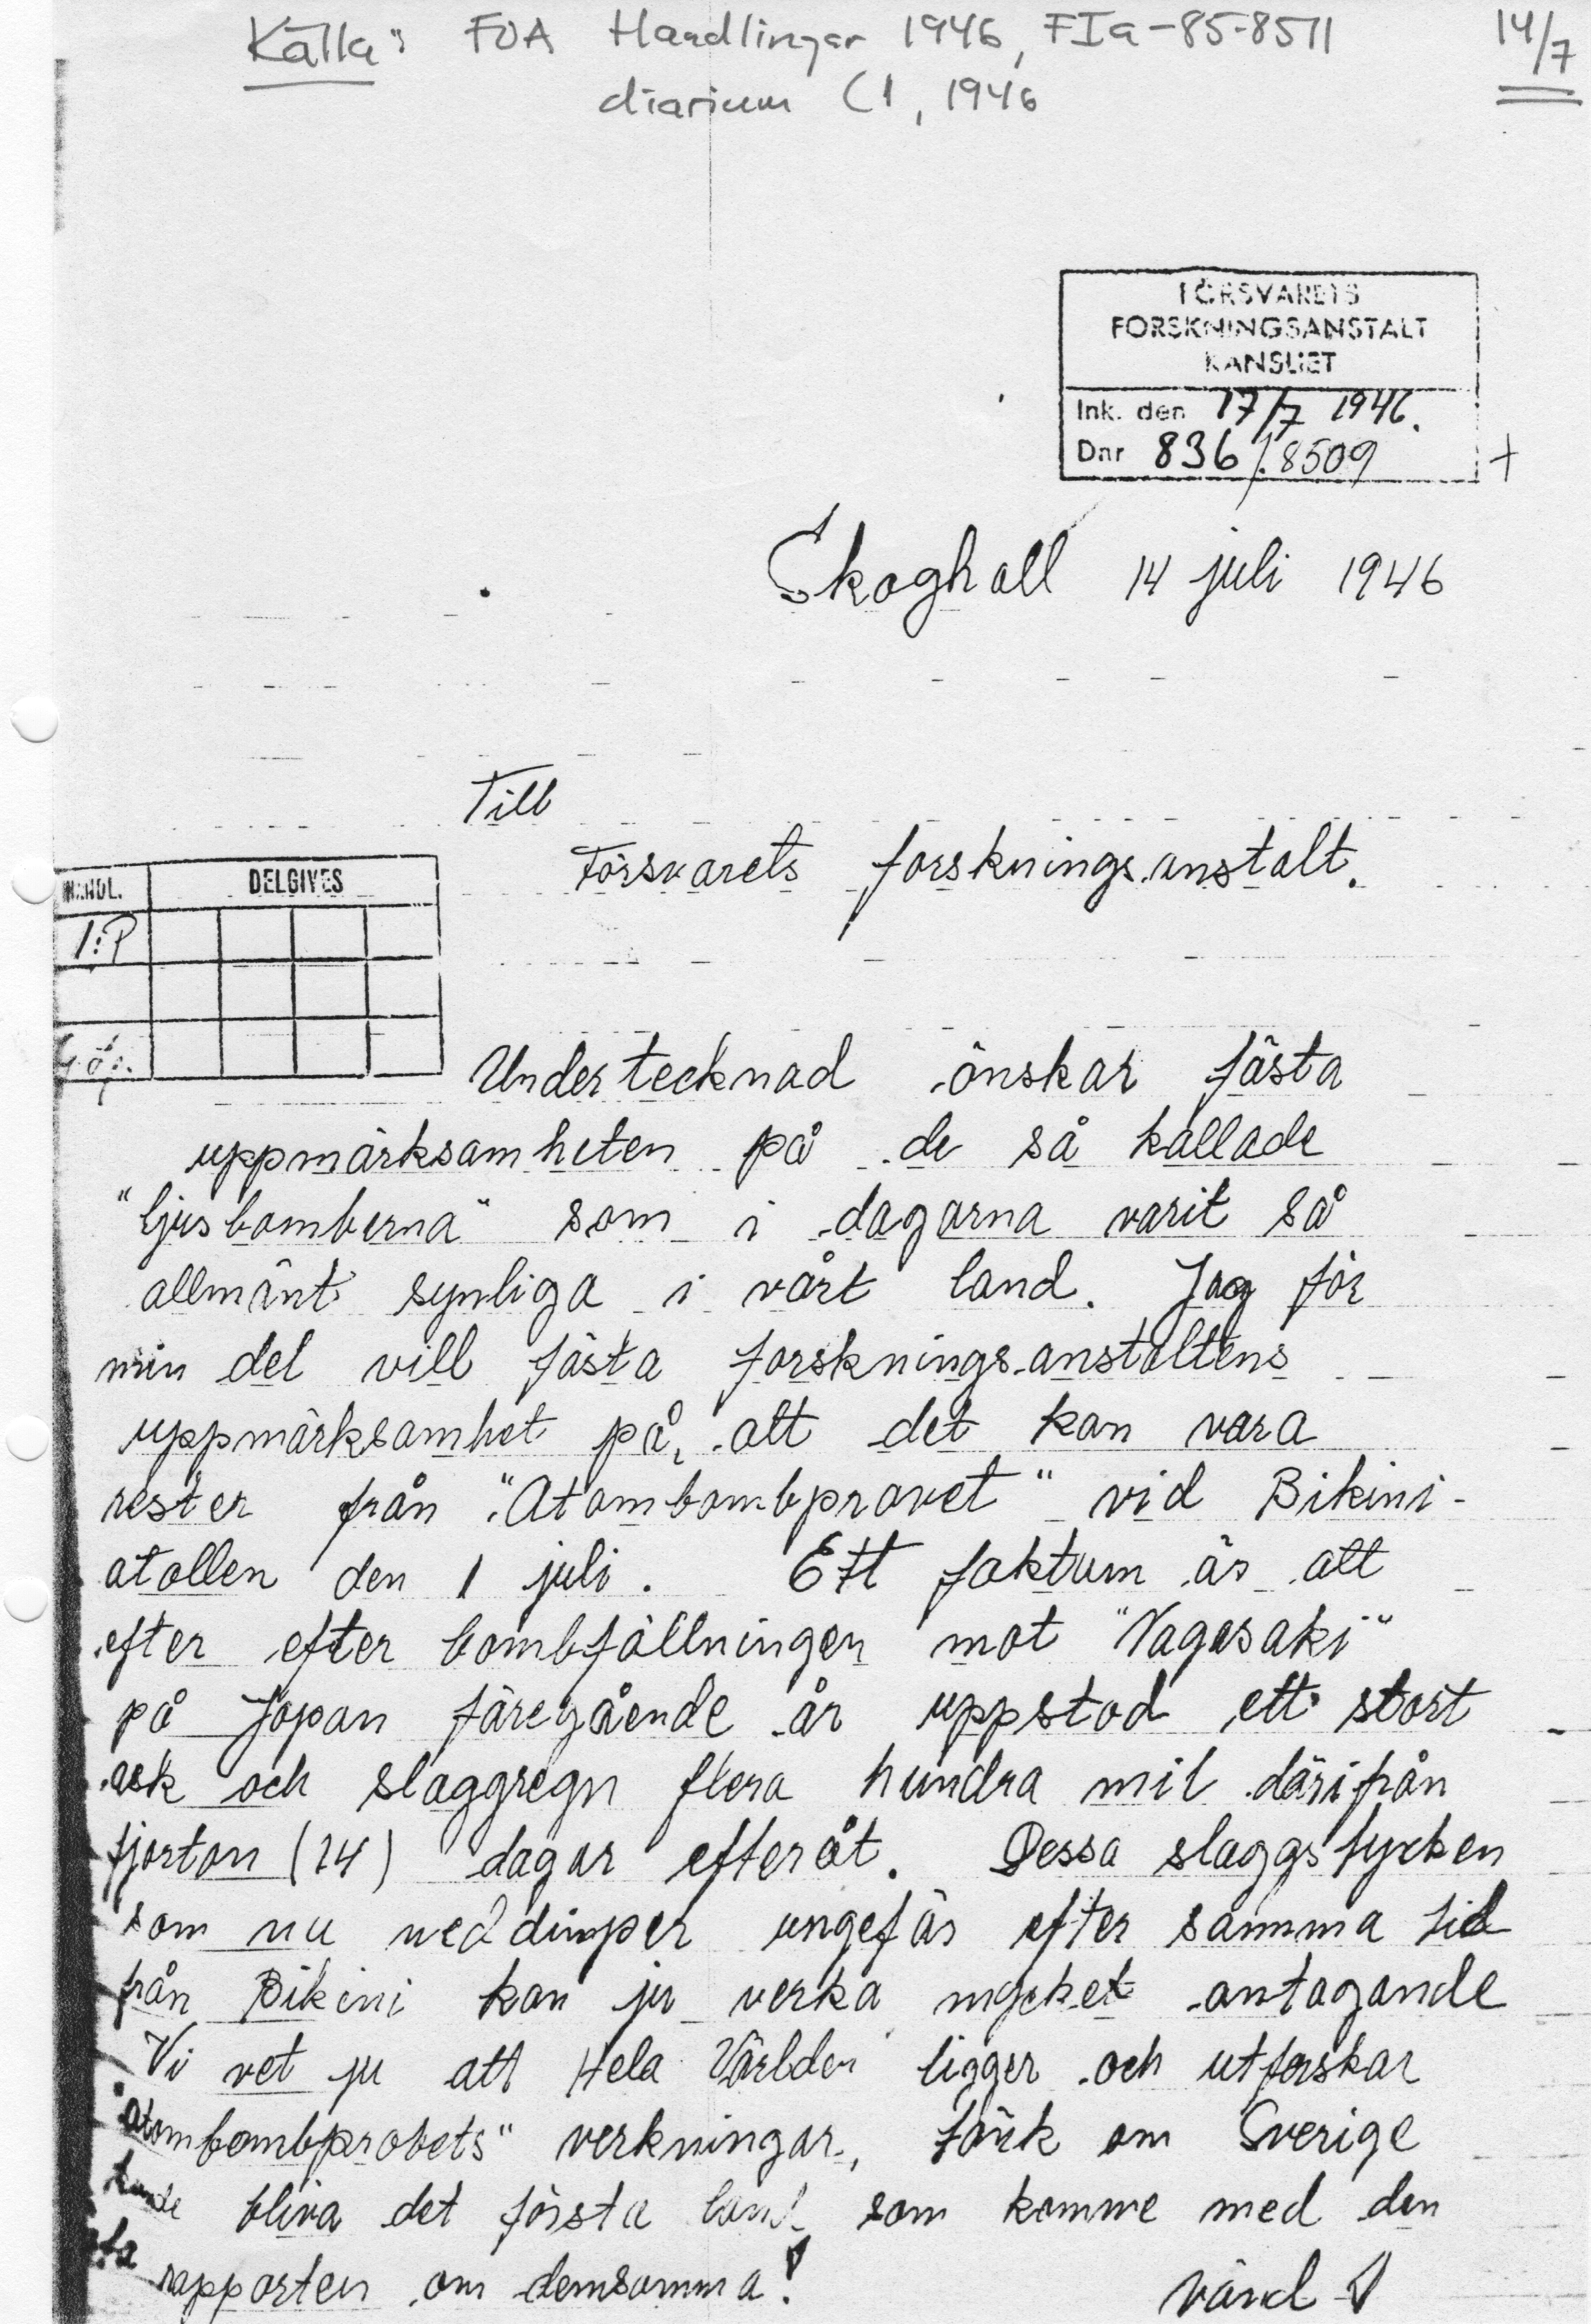 Källa: FOA Handlingar 1946, FIa-85-8511
14/7
diarium C1, 1946
FÖRSVARETS
FORSKNINGSANSTALT
KANSLIET
Ink. den 17/7 1946.
Dnr 836/:8509
Skoghall 14 juli 1946
Till
Försvarets forskningsanstalt.
HANDL. DELGIVES
1:P
Undertecknad önskar fästa
uppmärksamheten på de så kallade
"ljusbomberna" som i dagarna varit så
allmänt synliga i vårt land. Jag för
min del vill fästa forskningsanstaltens
uppmärksamhet på, att det kan vara
rester från "Atombombprovet" vid Bikini-
atollen den 1 juli. Ett faktum är att
efter efter bombfällningen mot "Nagasaki"
på Japan föregående år uppstod ett stort
ask och slaggregn flera hundra mil därifrån
fjorton (14) dagar efteråt. Dessa slaggstycken
som nu neddimper ungefär efter samma tid
från Bikini kan ju verka mycket antagande
Vi vet ju att Hela Världen ligger och utforskar
"atombombprovets" verkningar, tänk om Sverige
kunde bliva det första land som komme med den
rapporten om densamma!
vänd